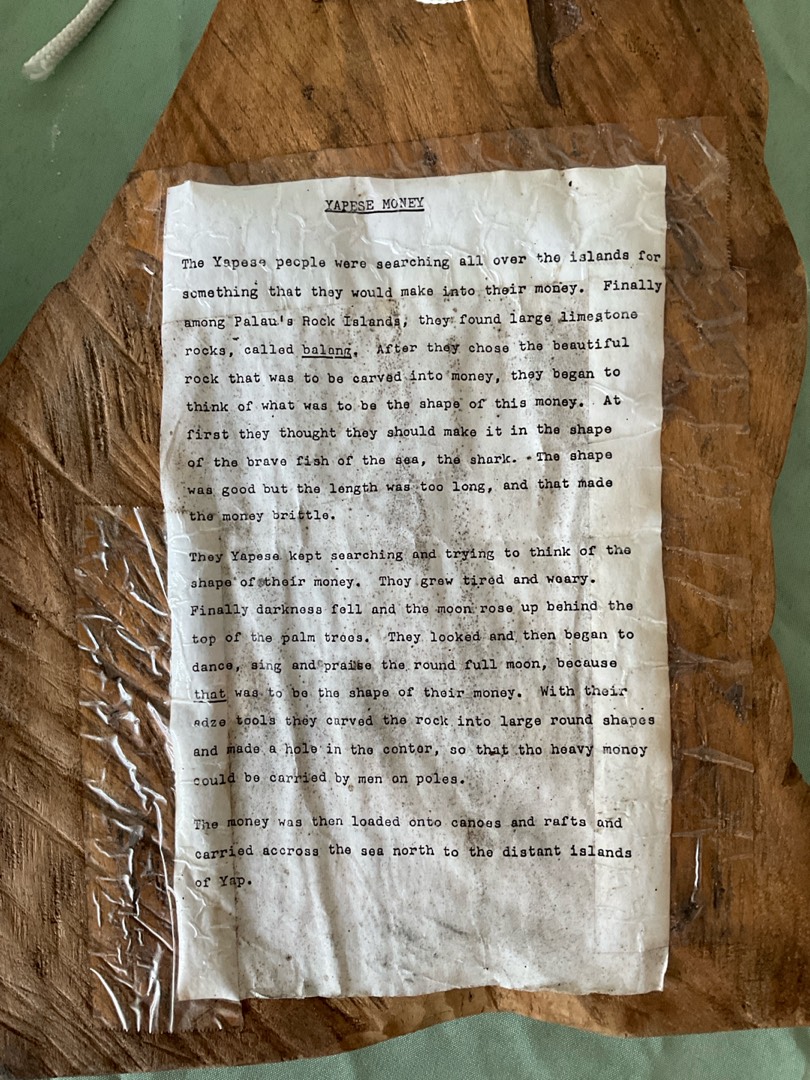 YAPESE MONEY
The Yapese people were searching all over the islands for
something that they would make into their money. Finally
among Palau's Rock Islands, they found large limestone
rocks, called balang. After they chose the beautiful
rock that was to be carved into money, they began to
think of what was to be the shape of this money. At
first they thought they should make it in the shape
of the brave fish of the sea, the shark. The shape
was good but the length was too long, and that made
the money brittle.
They Yapese kept searching and trying to think of the
shape of their money. They grew tired and weary.
Finally darkness fell and the moon rose up behind the
top of the palm trees. They looked and then began to
dance, sing and praise the round full moon, because
that was to be the shape of their money. With their
adze tools they carved the rock into large round shapes
and made a hole in the center, so that the heavy money
could be carried by men on poles.
The money was then loaded onto canoes and rafts and
carried accross the sea north to the distant islands
of Yap.